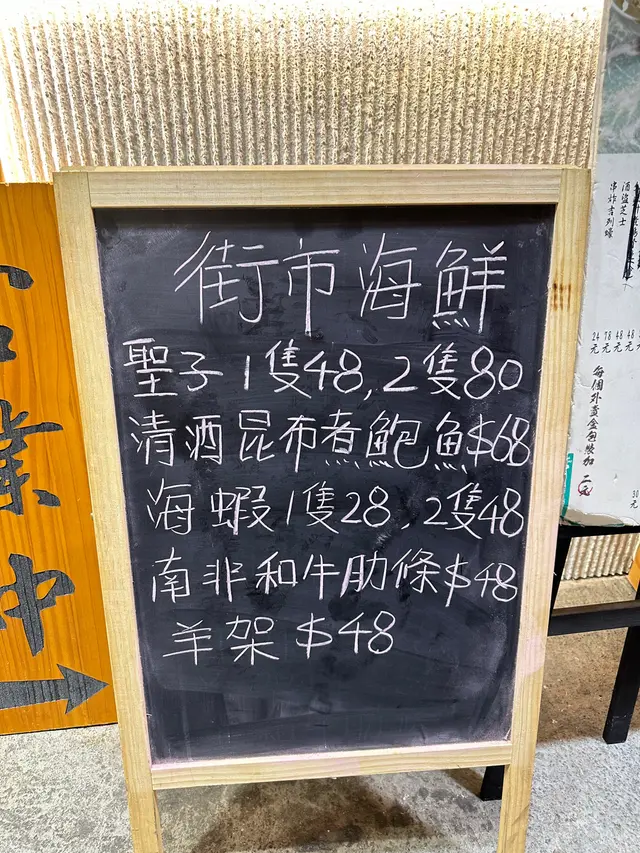 街市海鮮
聖子1隻48,2隻80
清酒昆布煮鮑魚$68
海蝦1隻28,2隻48
南非和牛肋條$48
羊架 $48
業中
酒盜芝士
串炸吉列蠔
24元
78元
48元
48元
每個外賣盒包裝加二元
30元